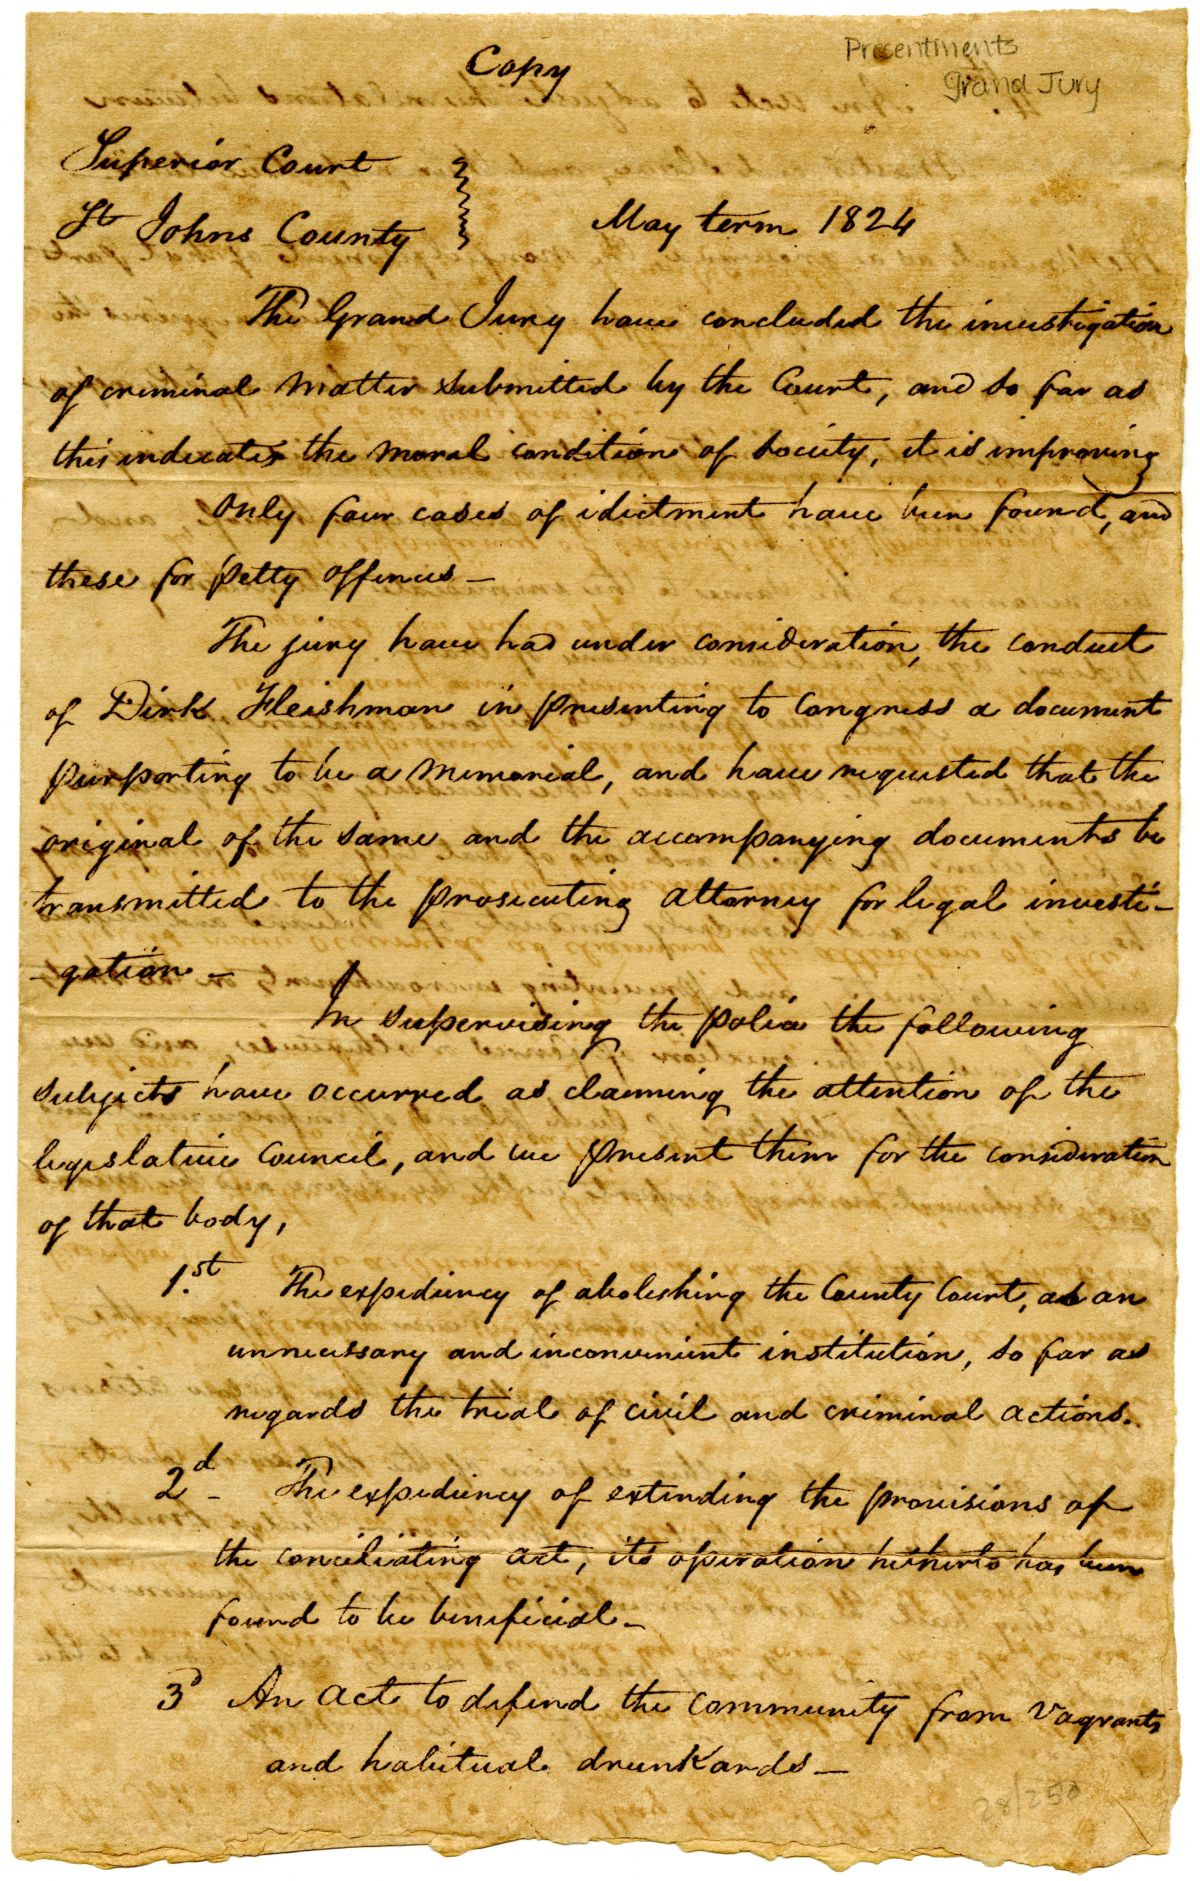 Copy
Precentments
Grand Jury
Superior Court
St Johns County
May term 1824
The Grand Jury have concluded the investigation
of criminal matter submitted by the Court, and so far as
this indicates the moral condition of society, it is improving
only four cases of idictment have been found, and
these for petty offences —
The jury have had under consideration, the conduct
of Dirk Fleishman in presenting to Congress a document
purporting to be a memorial, and have requested that the
original of the same and the accompanying documents be
transmitted to the prosecuting attorney for legal investi-
-gation —
In supervising the police the following
subjects have occurred as claiming the attention of the
legislative Council, and we present them for the consideration
of that body,
1.st The expediency of abolishing the County Court, as an
unnecessary and inconvenient institution, so far as
regards the trial of civil and criminal actions.
2d - The expediency of extending the provisions of
the conciliating act, its operation hitherto has been
found to be beneficial —
3d An act to defend the community from vagrants
and habitual drunkards —
28/250